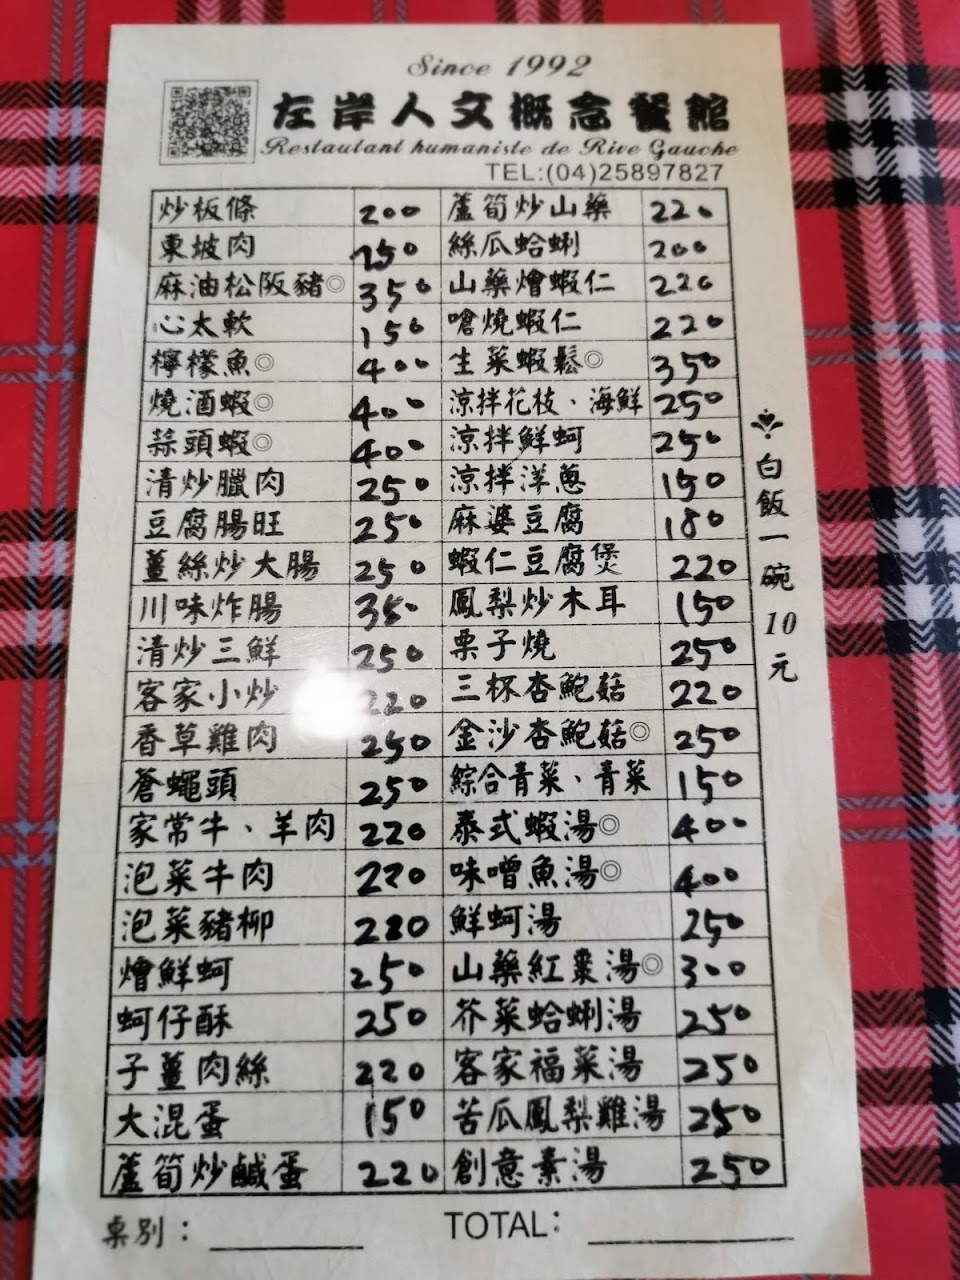 Since 1992
左岸人文概念餐館
Restautant humaniste de Rive Gauche
TEL:(04)25897827
炒板條 200 蘆筍炒山藥 220
東坡肉 250 絲瓜蛤蜊 200
麻油松阪豬◎ 350 山藥燴蝦仁 220
心太軟 150 嗆燒蝦仁 220
檸檬魚◎ 400 生菜蝦鬆◎ 350
燒酒蝦◎ 400 涼拌花枝、海鮮 250
蒜頭蝦◎ 400 涼拌鮮蚵 250
清炒臘肉 250 涼拌洋蔥 150
豆腐腸旺 250 麻婆豆腐 180
薑絲炒大腸 250 蝦仁豆腐煲 220
川味炸腸 350 鳳梨炒木耳 150
清炒三鮮 250 栗子燒 250
客家小炒 220 三杯杏鮑菇 220
香草雞肉 250 金沙杏鮑菇◎ 250
蒼蠅頭 250 綜合青菜、青菜 150
家常牛、羊肉 220 泰式蝦湯◎ 400
泡菜牛肉 220 味噌魚湯◎ 400
泡菜豬柳 220 鮮蚵湯 250
燴鮮蚵 250 山藥紅棗湯◎ 300
蚵仔酥 250 芥菜蛤蜊湯 250
子薑肉絲 220 客家福菜湯 250
大混蛋 150 苦瓜鳳梨雞湯 250
蘆筍炒鹹蛋 220 創意素湯 250
白飯一碗10元
桌別： TOTAL：